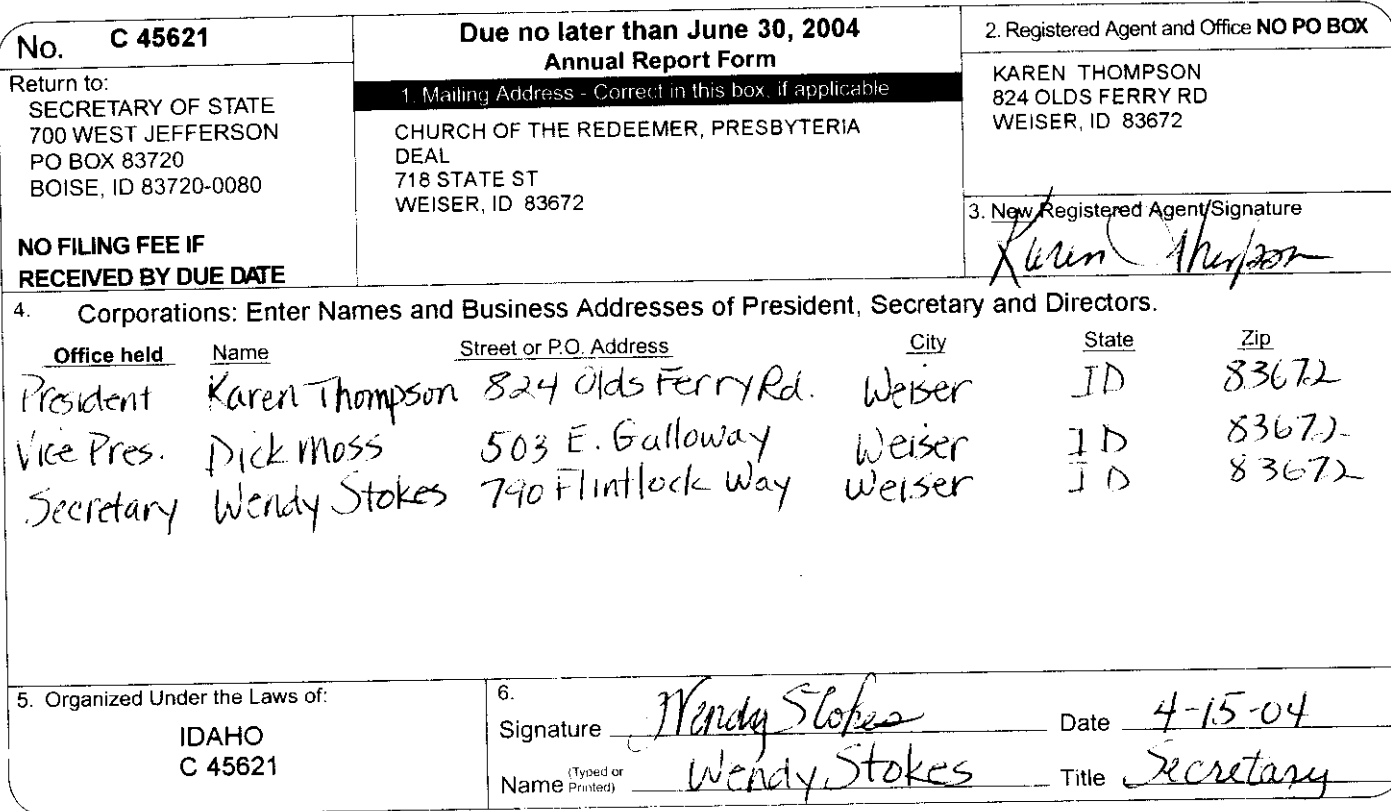 No. C 45621
Return to:
SECRETARY OF STATE
700 WEST JEFFERSON
PO BOX 83720
BOISE, ID 83720-0080
NO FILING FEE IF
RECEIVED BY DUE DATE
Due no later than June 30, 2004
Annual Report Form
1. Mailing Address - Correct in this box, if applicable
CHURCH OF THE REDEEMER, PRESBYTERIA
DEAL
718 STATE ST
WEISER, ID 83672
2. Registered Agent and Office NO PO BOX
KAREN THOMPSON
824 OLDS FERRY RD
WEISER, ID 83672
3. New Registered Agent Signature
Karen Thompson
4. Corporations: Enter Names and Business Addresses of President, Secretary and Directors.
Office held Name Street or P.O. Address City State Zip
President Karen Thompson 824 Olds Ferry Rd. Weiser ID 83672
Vice Pres. Dick Moss 503 E. Galloway Weiser ID 83672
Secretary Wendy Stokes 790 Flintlock Way Weiser ID 83672
5. Organized Under the Laws of:
IDAHO
C 45621
6.
Signature Wendy Stokes Date 4-15-04
Name (Typed or Printed) Wendy Stokes Title Secretary